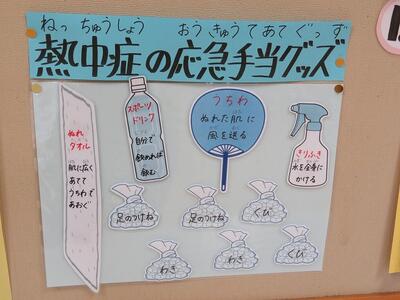 ねっちゅうしょう おうきゅうてあてぐっず
熱中症の応急手当グッズ
ぬれ
タオル
肌に広く
あてて
うちわで
あおぐ
スポーツ
ドリンク
自分で
飲めれば
飲む
うちわ
ぬれた肌に
風を送る
きりふき
水を全身に
かける
足のつけね
足のつけね
くび
わき
わき
くび